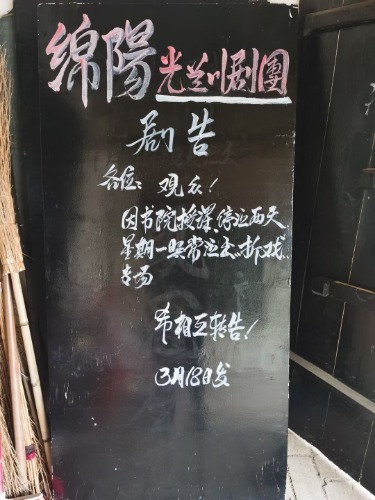 绵陽光兰川剧團
剧告
各位：观众！
因书院授课,停演两天
星期一照常演出.折戏
专场
希相互转告！
3月18日发